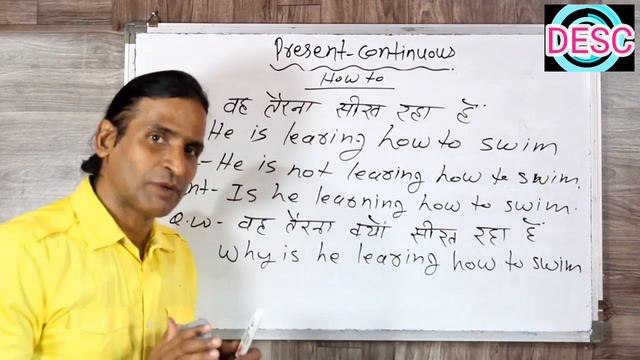 DESC
Present-Continuous
How to
वह तैरना सीख रहा हैं
He is learing how to swim
- He is not learing how to swim.
Int- Is he learning how to swim.
Q.W- वह तैरना क्यों सीख रहा हैं
Why is he learing how to swim